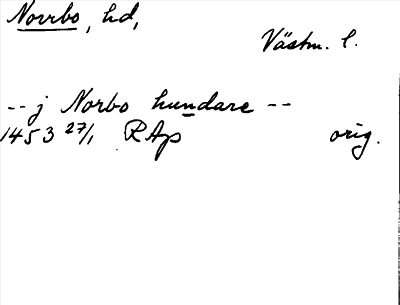 Norrbo, hd,
Västm. l.
-- j Norbo hundare --
1453 27/1 RAp orig.